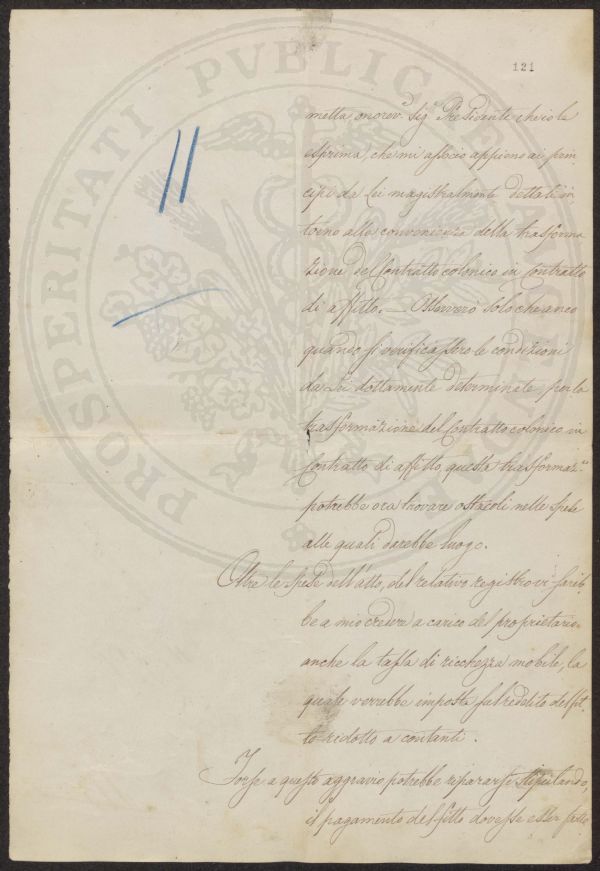 121
metta onorev. Sig. Presidente che io le
esprima, che mi associo appieno ai prin-
cipi da Lei magistralmente dettati in-
torno alla convenienza della trasforma
zione del Contratto colonico in Contratto
di affitto. — Osserverò solo che anco
quando si verificassero le condizioni
da Lei dottamente determinate per la
trasformazione del Contratto colonico in
Contratto di affitto, questa trasformaz.
potrebbe ora trovare ostacoli nelle spese
alle quali darebbe luogo.
Oltre le spese dell'atto, del relativo registro vi sareb-
be a mio credere a carico del proprietario
anche la tassa di ricchezza mobile, la
quale verrebbe imposta sul reddito del fit-
to ridotto a contanti.
Forse a questo aggravio potrebbe ripararsi stipulando,
il pagamento del fitto dovesse esser fatto
PROSPERITATI PVBLICAE